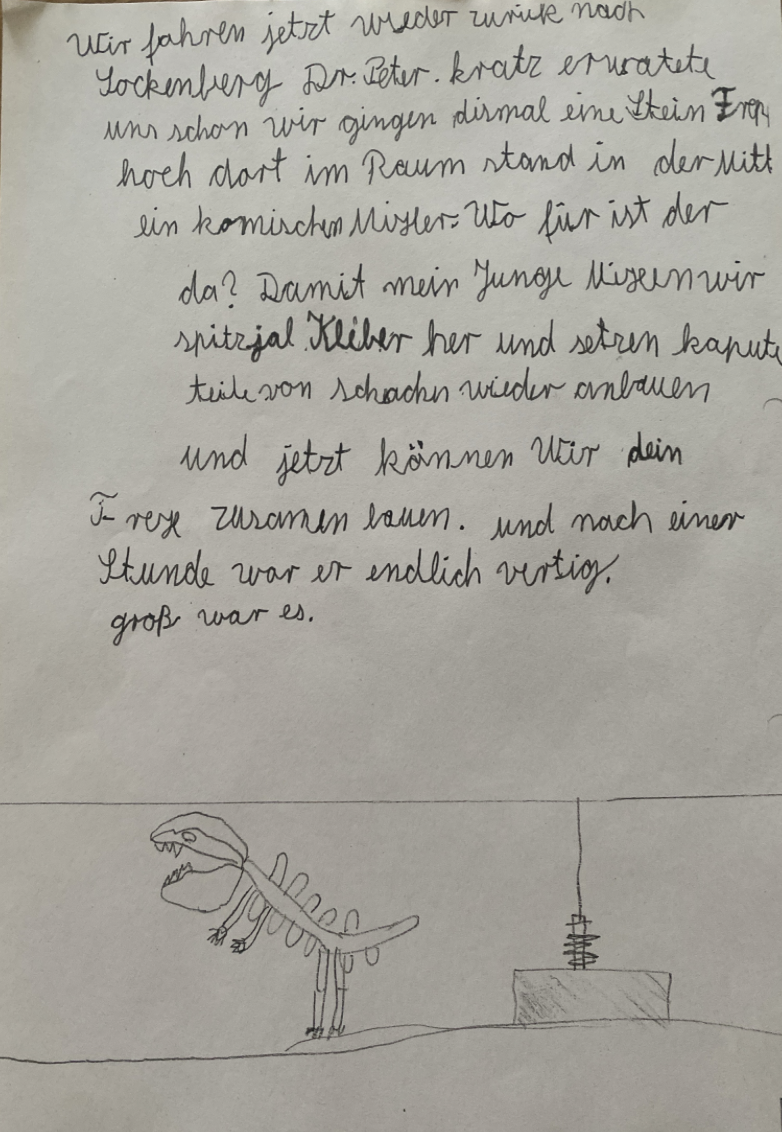 Wir fahren jetzt wieder zurük nach
Lockenberg Dr. Peter. kratz erwatete
uns schon wir gingen dismal eine Stein
hoch dort im Raum stand in der Mitt
ein komischen Mixer. Wo für ist der
da? Damit mein Junge Mixen wir
spitzjal Kleber her und setzen kapute
teile von schachn wieder anbauen
und jetzt können Wir dein
zusamen bauen. und nach einer
Stunde war er endlich vertig.
groß war es.